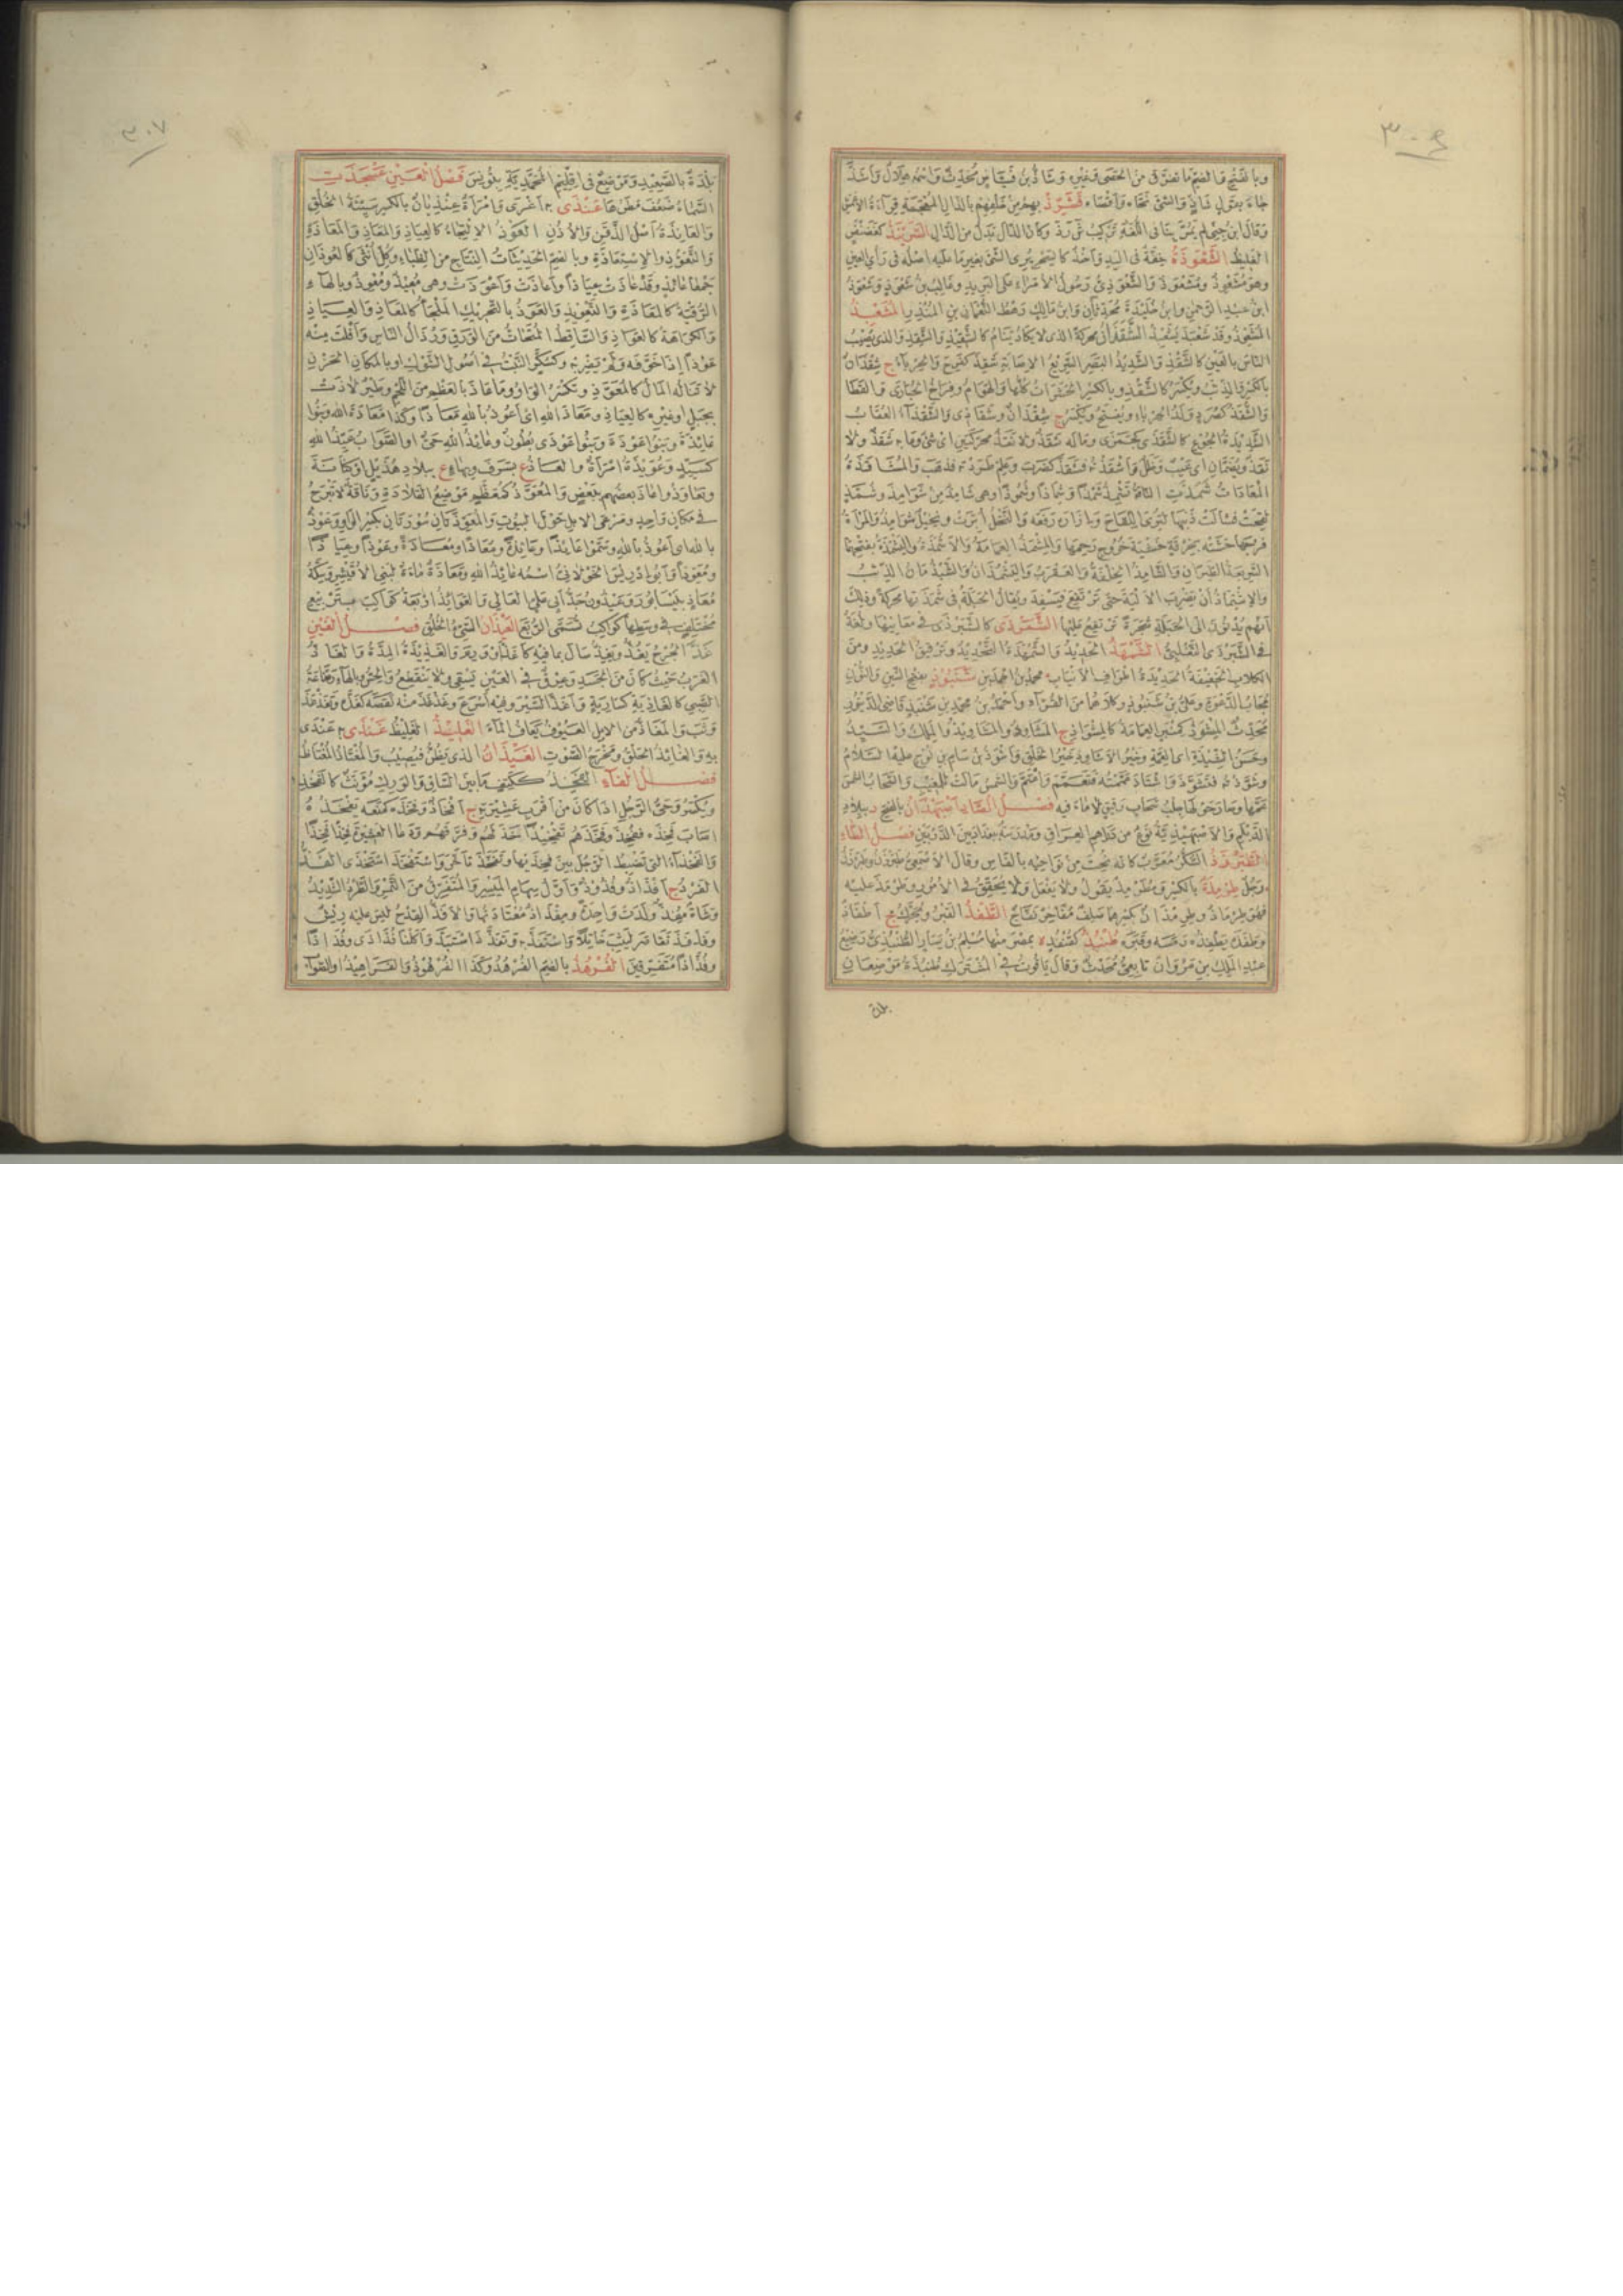 وبالفتح والضم ما تفرق من الحصى وغيره وشاذ بن فياض محدث واسمه هلال وأشذ
جاء بقول شاذ والشئ نحاه وأقصاه فشرذ بهم من خلفهم بالذال المعجمة قراءة الأعمش
وقال ابن جنى لم يمرر بنا فى اللغة تركيب ش ر ذ وكأن الذال بدل من الدال الشرنبذ كغضنفر
الغليظ الشعوذة خفة فى اليد وأخذ كالسحر يرى الشئ بغير ما عليه أصله فى رأى العين
وهو مشعوذ ومشعوذ والشعوذى رسول الأمراء على البريد
ابن عبد الرحمن وابن خليدة محدثان وابن مالك رهط النعمان بن المنذر المشعبذ
المشعوذ وقد شعبذ يشعبذ الشقذان محركة الذى لا يكاد ينام كالشقيذ والشقذ والذى يصيب
الناس بالعين كالشقذ والشديد البصر السريع الإصابة شقذ كفرح والحرباء ج شقذان
بالكسر والذئب ويكسر كالشقذ وبالكسر الحشرات كلها والهوام وفراخ الحبارى والقطا
والشقذ كصرد ولد الحرباء ويفتح ويكسر ج شقذان وشقاذى والشقذاء العقاب
الشديدة الجوع كالشقذى كجمزى وما له شقذ ولا نقذ محركتين أى شئ وما به شقذ ولا
نقذ ويضمان أى عيب وخلل وأشقذته فشقذ كضرب وعلم طردته فذهب والمشاقذة
المعاداة شمذت الناقة تشمذ شمذا وشماذا وشموذا وهى شامذ من شوامذ وشمذ
لقحت فشالت ذنبها لترى اللقاح وبإزاره رفعه والنخل أبرت ونخيل شوامذ والمرأة
فرجها حشته بخرقة خشية خروج رحمها والمشمذ العمامة
السريعة الطيران والشامذ الخلفة والعقرب
والإشماذ أن يضرب الألية حتى ترتفع فيسفد
الشمرذى كالشبرذى فى معانيها ولغة
فى الشبرذى التغلبى الشمهذ الحديد والشمهذة التحديد وترقيق الحديد ومن
الكلاب الخفيفة الحديدة أطراف الأنياب محمد بن أحمد بن شنبوذ بفتح الشين والنون
مجاب الدعوة وعلى بن شنبوذ وكلاهما من القراء وأحمد بن محمد بن شنبذ قاضى الدينور
محدث المشوذ كمنبر العمامة كالمشواذ ج المشاوذ والمشاويذ والملك والسيد
وحسن الشيذة أى العمة وخير الأشاوذ خير الخلق وأشوذ بن سام بن نوح عليه السلام
وشوذته فتشوذ واشتاذ عممته فتعمم واعتم والشمس مالت للمغيب والسحاب الشمس
عمها وجاد حولها جلب سحاب رقيق لا ماء فيه فصل الصاد أصبهذان بالفتح د ببلاد
الديلم والأصبهبذية نوع من دراهم العراق ومدرسة ببغداد بين الدربين فصل الطاء
الطبرزذ السكر معرب كأنه نحت من نواحيه بالفأس وقال الأصمعى طبرزن وطبرزذ
رجل طرمذة بالكسر ومطرمذ يقول ولا يفعل ولا يحقق فى الأمور وطرمذ عليه
فهو طرماذ وطرمذان بكسرهما صلف مفاخر نفاج الطفذ القبر ويحرك ج أطفاذ
وطفذه يطفذه رمسه وقبره طنبذ كقنفذ ة بمصر منها مسلم بن يسار الطنبذى رضيع
عبد الملك بن مروان تابعى محدث وقال ياقوت فى المشترك طنبذة موضعان
بلدة
بلدة بالصعيد وموضع فى إقليم المحمدية بتونس فصل العين عسجذت
السماء ضعف مطرها عنذى به أغرى وامرأة عنذيان بالكسر سيئة الخلق
والعانذة أصل الذقن والأذن العوذ الالتجاء كالعياذ والمعاذ والمعاذة
والتعوذ والاستعاذة وبالضم الحديثات النتاج من الظباء وكل أنثى كالعوذان
جمعا عائذ وقد عاذت عياذا وأعاذت وأعوذت وهى معيذ ومعوذ وبالهاء
الرقية كالمعاذة والتعويذ والعوذ بالتحريك الملجأ كالمعاذ والعياذ
والكراهة كالعواذ والساقط المتحات من الورق ورذال الناس وأفلت منه
عوذا إذا خوفه ولم يضربه وكسكر النبت فى أصول الشوك أو بالمكان الحزن
لا تناله المال كالمعوذ وتكسر الواو وما عاذ بالعظم من اللحم وطير لاذت
بجبل أو غيره كالعياذ ومعاذ الله أى أعوذ بالله معاذا وكذا معاذة الله وبنو
عائذة وبنو عوذة وبنو عوذى بطون وعائذ الله حى أو الصواب عيذ الله
كسيد وعويذة امرأة والعاذ ع بسرف وبهاء ع ببلاد هذيل أو كنانة
وتعاوذوا عاذ بعضهم ببعض والمعوذ كمعظم موضع القلادة وناقة لا تبرح
فى مكان واحد ومرعى الإبل حول البيوت والمعوذتان سورتان بكسر الواو وعوذ
بالله أى أعوذ بالله وسموا عائذا وعائذة ومعاذا ومعاذة وعوذا وعياذا
ومعوذا وأبو إدريس الخولانى اسمه عائذ الله ومعاذة ماءة لبنى الأقيشر وسكة
معاذ بنيسابور وعيذون جد أبى على القالى والعوائذ أربعة كواكب بتربيع
مختلف فى وسطها كوكب تسمى الربع العيذان السيئ الخلق فصل الغين
غذ الجرح يغذ ويغذ سال بما فيه كأغذ أو ورم والغذيذة المدة والغاذ
الغرب حيث كان من الجسد وعرق فى العين يسقى ولا ينقطع والحس وبالهاء رماعة
الصبى كالغاذية كسارية وأغذ السير وفيه أسرع وغذغذ منه نقصه كغذه وتغذغذ
وثب والمغاذ من الإبل العيوف يعاف الماء الغليذ الغليظ غنذى به عنذى
به والغانذ الحلق ومخرج الصوت الغيذان الذى يظن فيصيب والمغتاذ المغتاظ
فصل الفاء الفخذ ككتف ما بين الساق والورك مؤنث كالفخذ
ويكسر وحى الرجل إذا كان من أقرب عشيرته ج أفخاذ وفخذه كمنعه يفخذه
أصاب فخذه ففخذ وفخذهم تفخيذا خذلهم وفرقهم ودعا العشيرة فخذا فخذا
والفخذاء التى تضبط الرجل بين فخذيها وتفخذ تأخر واستفخذ استخذى الفذ
الفرد ج أفذاذ وفذوذ وأول سهام الميسر والمتفرق من التمر والطرد الشديد
وشاة مفذ ولدت واحدة ومفذاذ معتادتها والأفذ القدح ليس عليه ريش
وفذفذ تقاصر ليثب خاتلا واستفذ به وتفذذ استبد وأكلنا فذاذى وفذاذا
وفذاذا متفرقين الفرهذ بالضم الفرهد وكذا الفرهوذ والفراهيذ أو الصواب